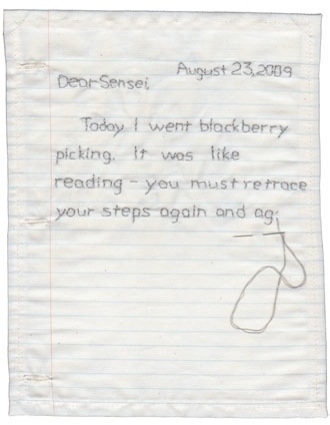 August 23, 2009
Dear Sensei,
Today I went blackberry
picking. It was like
reading - you must retrace
your steps again and ag